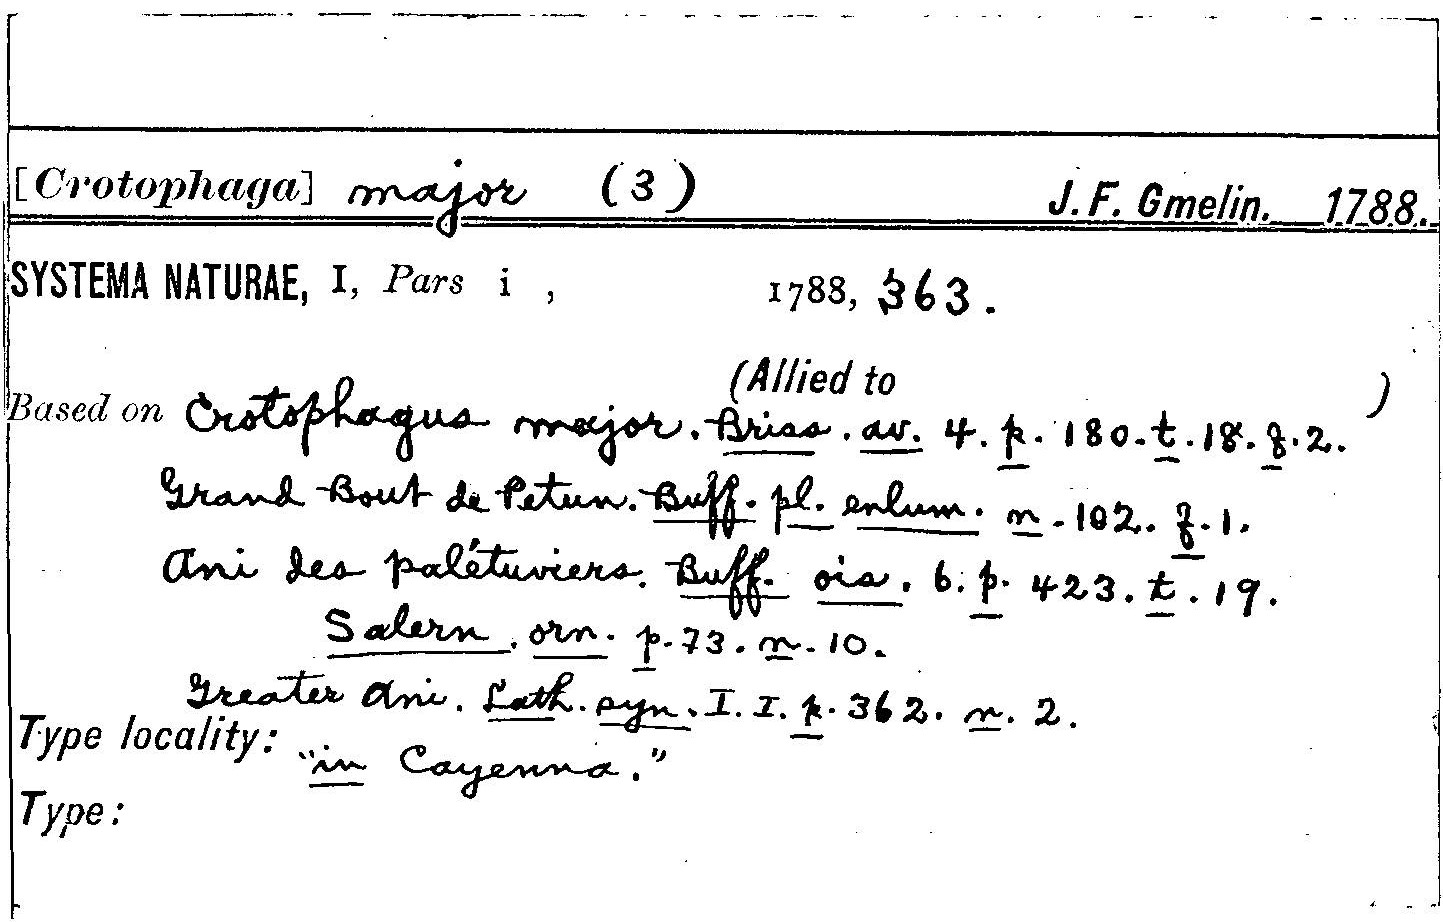 [Crotophaga] major (3) J. F. Gmelin. 1788.
SYSTEMA NATURAE, I, Pars i , 1788, 363.
(Allied to )
Based on Crotophagus major. Briss. av. 4. p. 180. t. 18. f. 2.
Grand Bout de Petun. Buff. pl. enlum. n. 102. f. 1.
Ani des palétuviers. Buff. ois. 6. p. 423. t. 19.
Salern. orn. p. 73. n. 10.
Greater Ani. Lath. syn. I. I. p. 362. n. 2.
Type locality: "in Cayenna."
Type: